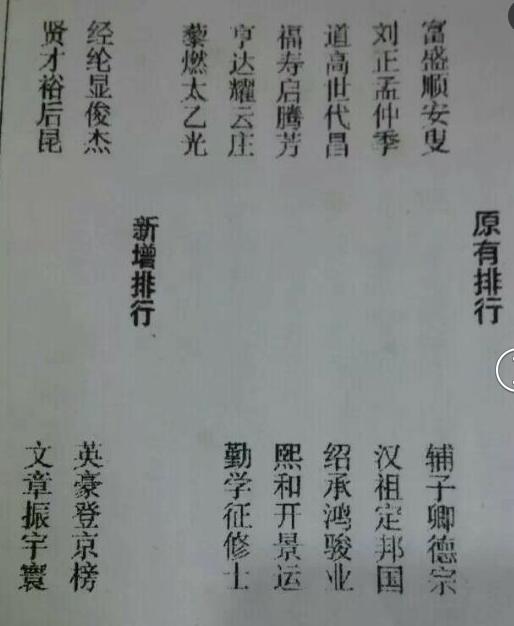 原有排行
富盛顺安叟
辅子卿德宗
刘正孟仲季
汉祖定邦国
道高世代昌
绍承鸿骏业
福寿启腾芳
熙和开景运
亨达耀云庄
勤学征修士
藜燃太乙光
新增排行
经纶显俊杰
英豪登京榜
贤才裕后昆
文章振宇寰